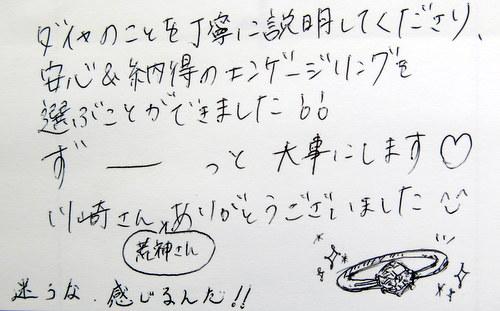 ダイヤのことを丁寧に説明してくださり、
安心&納得のエンゲージリングを
選ぶことができました!!
ずーっと 大事にします♡
川崎さん、ありがとうございました
荒神さん
迷うな、感じるんだ!!